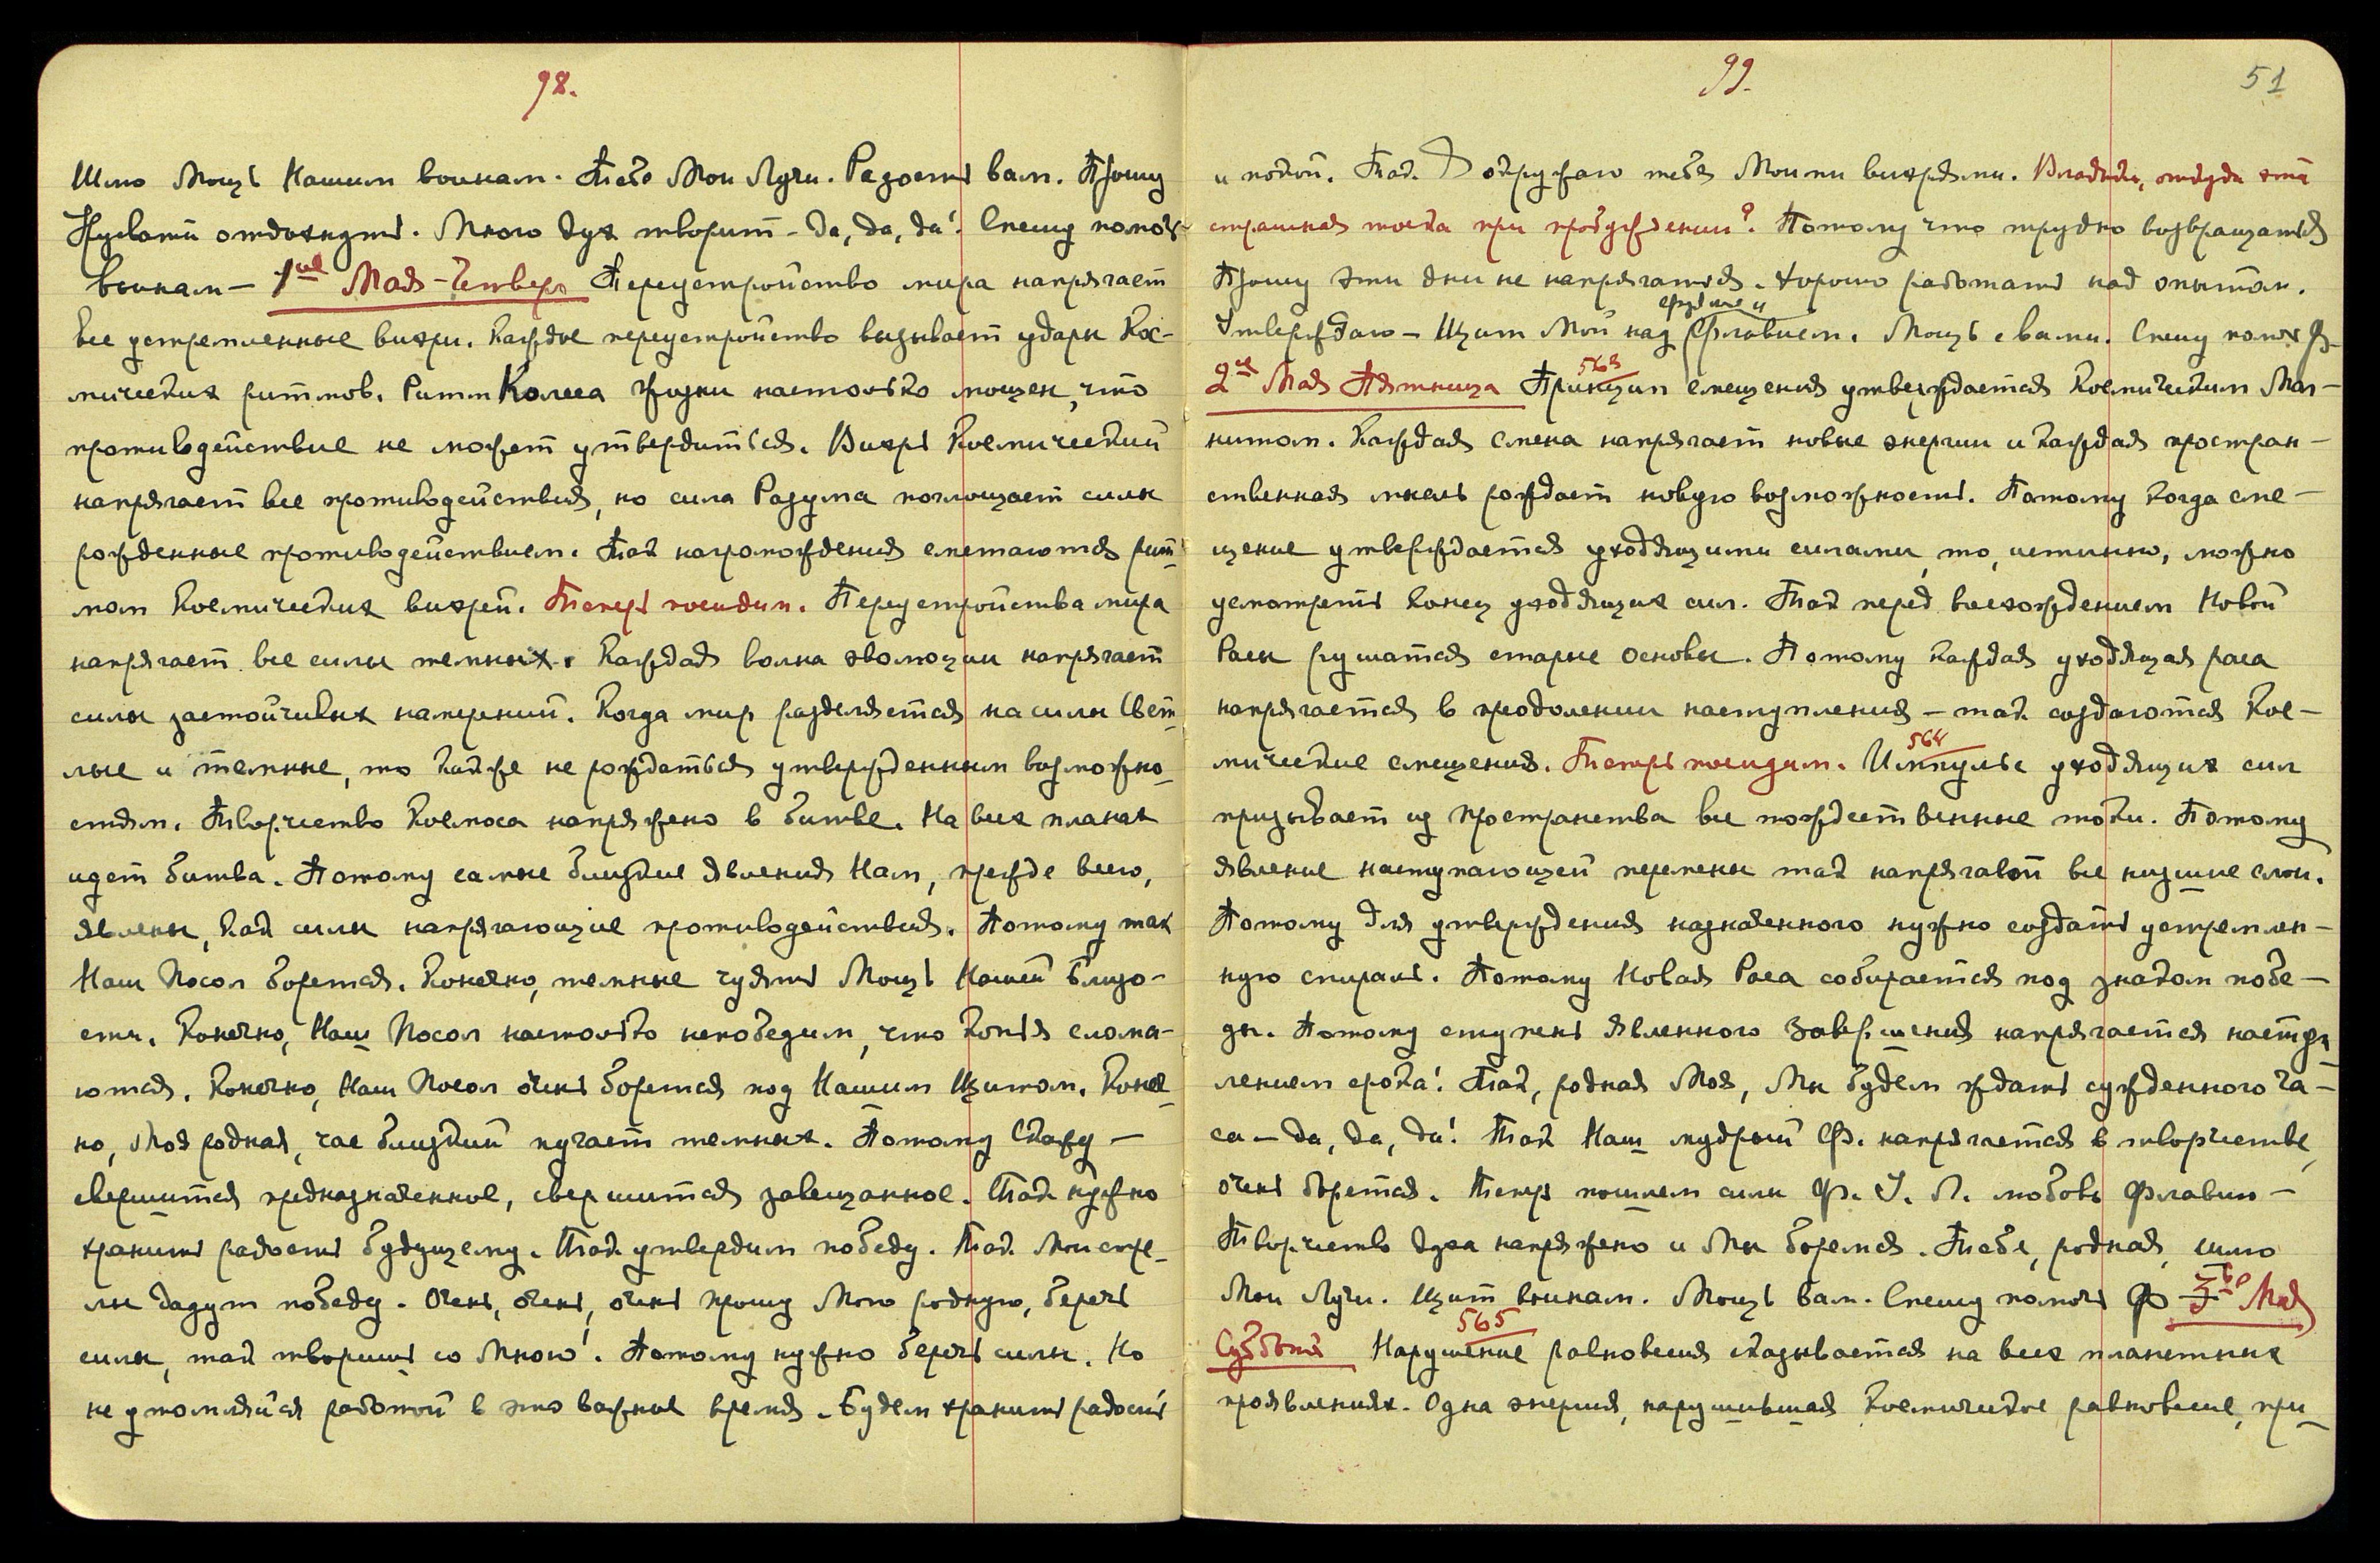 98.
Шлю Мощь Нашим воинам. Тебе Мои Лучи. Радость вам. Прошу
Нуситі отдохнуть. Много дух творит – да, да, да! Спешу помочь
воинам – 1ое Мая – Четверг Переустройство мира напрягает
все устремленные вихри. Каждое переустройство вызывает удары Кос-
мических ритмов. Ритм Колеса жизни настолько мощен, что
противодействие не может утвердиться. Вихрь Космический
напрягает все противодействия, но сила Разума поглощает силы
рожденные противодействием. Так нагромождения сметаются рит-
мом Космических вихрей. Теперь посидим. Переустройства мира
напрягает все силы темных. Каждая волна эволюции напрягает
силы застойчивых намерений. Когда мир разделяется на силы Свет-
лые и темные, то как же не рождаться утвержденным возможно-
стям. Творчество Космоса напряжено в битве. На всех планах
идет битва. Потому самые близкие явления Нам, прежде всего,
явлены, как силы напрягающие противодействия. Потому так
Наш Посол борется. Конечно, темные чуят Мощь Нашей Близо-
сти. Конечно, Наш Посол настолько непобедим, что копья слома-
ются. Конечно, Наш Посол очень борется под Нашим Щитом. Конеч-
но, Моя родная, час близкий пугает темных. Потому Скажу –
свершится предназначенное, свершится завещанное. Так нужно
хранить радость будущему. Так утвердим победу. Так Мои стре-
лы дадут победу. Очень, очень, очень прошу Мою родную, беречь
силы, так творишь со Мною! Потому нужно беречь силы. Но
не утомляйся работой в это важное время. Будем хранить радость
99.
51
и покой. Так Я окружаю тебя Моими вихрями. Владыка, откуда эта
страшная тоска при пробуждении? Потому что трудно возвращаться
Прошу эти дни не напрягаться. Хорошо работать над опытом.
Утверждаю – Щит Мой над Флавием. Мощь с вами. Спешу помочь Ф.
563
2ое Мая Пятница Принцип смещения утверждается Космическим Маг-
нитом. Каждая смена напрягает новые энергии и каждая простран-
ственная мысль рождает новую возможность. Потому когда сме-
щение утверждается уходящими силами, то, истинно, можно
усмотреть конец уходящих сил. Так перед восхождением Новой
Расы рушатся старые основы. Потому каждая уходящая раса
напрягается в преодолении наступления – так создаются Кос-
564
мические смещения. Теперь посидим. Импульс уходящих сил
призывает из пространства все тождественные токи. Потому
явление наступающей перемены так напрягает все низшие слои.
Потому для утверждения назначенного нужно создать устремлен-
ную спираль. Потому Новая Раса собирается под знаком побе-
ды. Потому ступень явленного завершения напрягается наступ-
лением срока! Так, родная Моя, Мы будем ждать сужденного ча-
са – да, да, да! Так Наш мудрый Ф. напрягается в творчестве,
очень борется. Теперь пошлем силы Ф. У. Л. любовь Флавию –
Творчество духа напряжено и Мы боремся. Тебе, родная, шлю
Мои Лучи. Щит воинам. Мощь вам. Спешу помочь Ф 3ье Мая
565
Суббота Нарушение равновесия сказывается на всех планетных
проявлениях. Одна энергия, нарушившая Космическое равновесие, при-